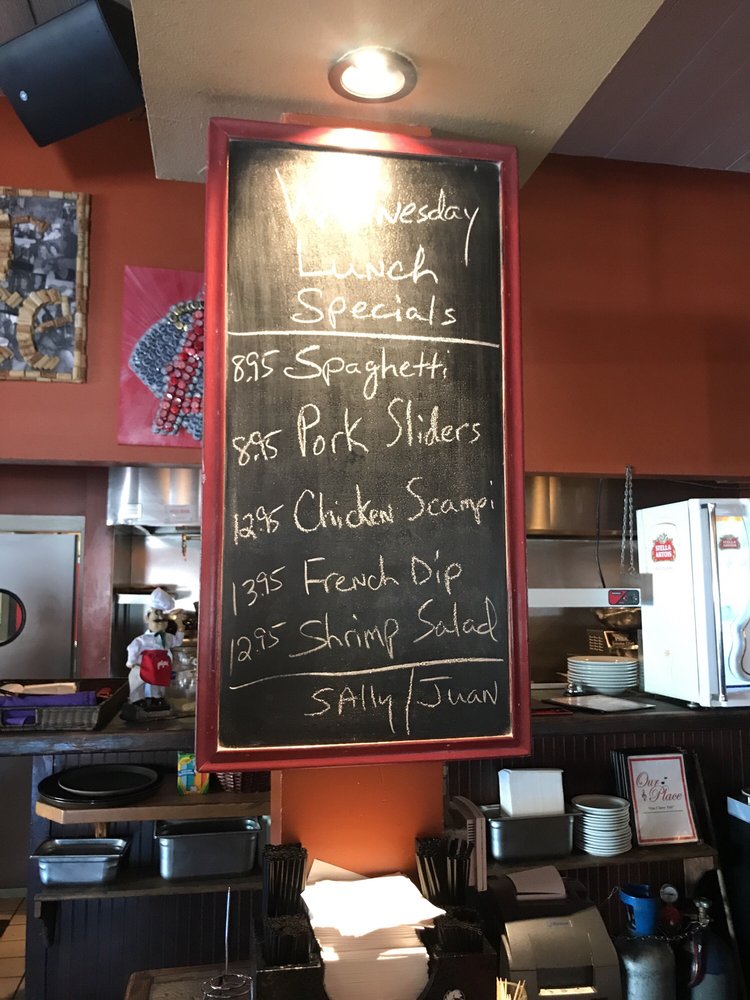 Wednesday
Lunch
Specials
8.95 Spaghetti
8.95 Pork Sliders
12.95 Chicken Scampi
13.95 French Dip
12.95 Shrimp Salad
SAlly/Juan
STELLA ARTOIS
Our
Place